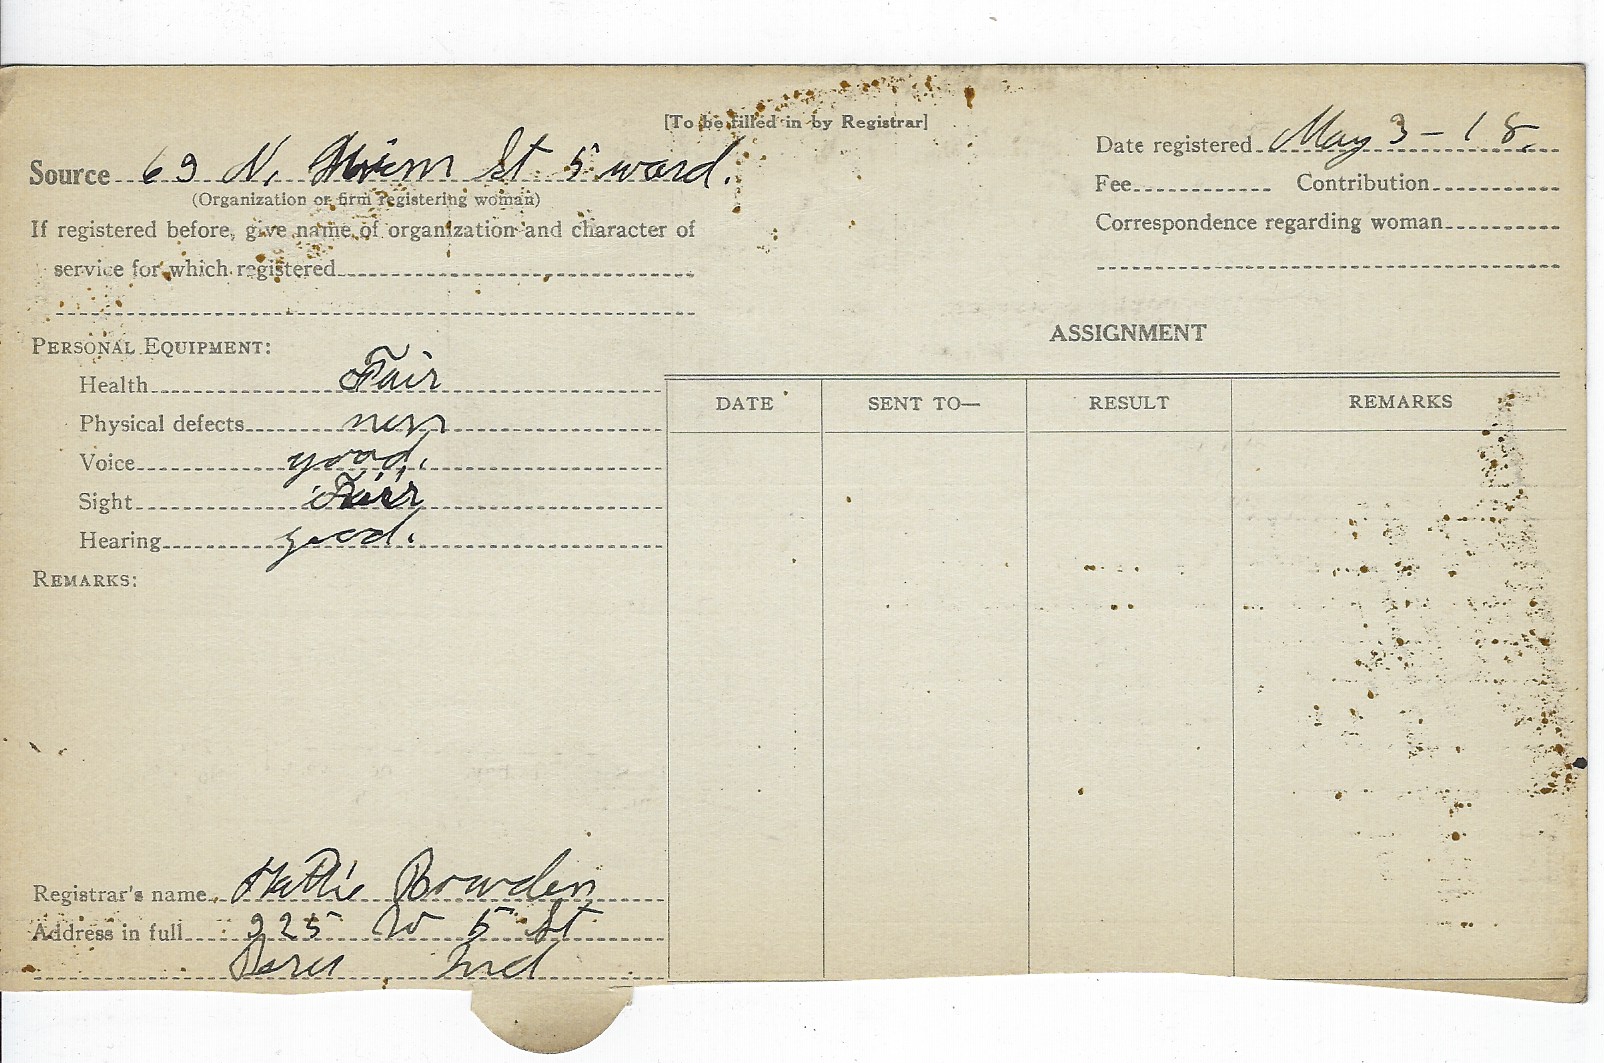 [To be filled in by Registrar]
Date registered May 3 - 18.
Source 69 N. St 5 ward.
(Organization or firm registering woman)
Fee Contribution
If registered before, give name of organization and character of
Correspondence regarding woman
service for which registered
ASSIGNMENT
PERSONAL EQUIPMENT:
Health Fair
Physical defects
Voice good.
Sight Fair
Hearing good.
DATE SENT TO— RESULT REMARKS
REMARKS:
Registrar's name Hattie Bowden
Address in full 325 W 5 St
Peru Ind